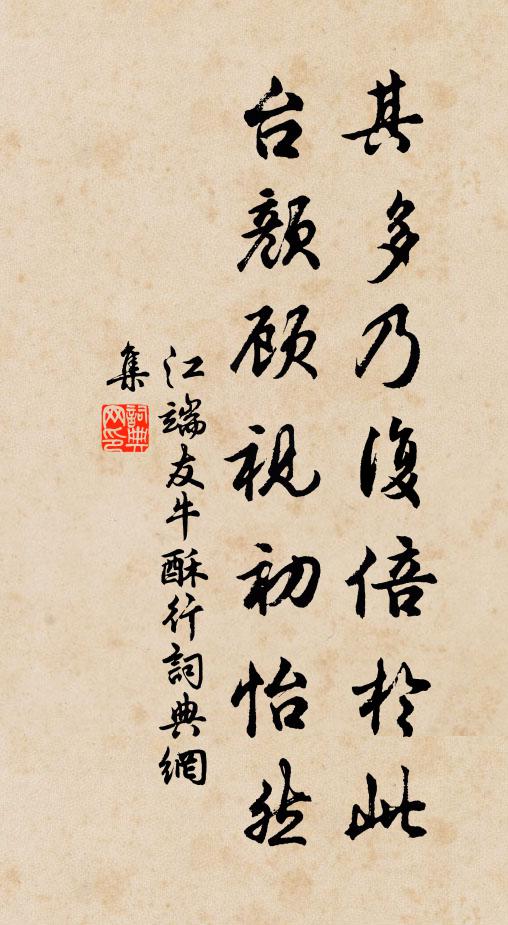 其多乃復倍於此
台顏顧視初怡然
江端友牛酥行詞典網
集
詞典
网印